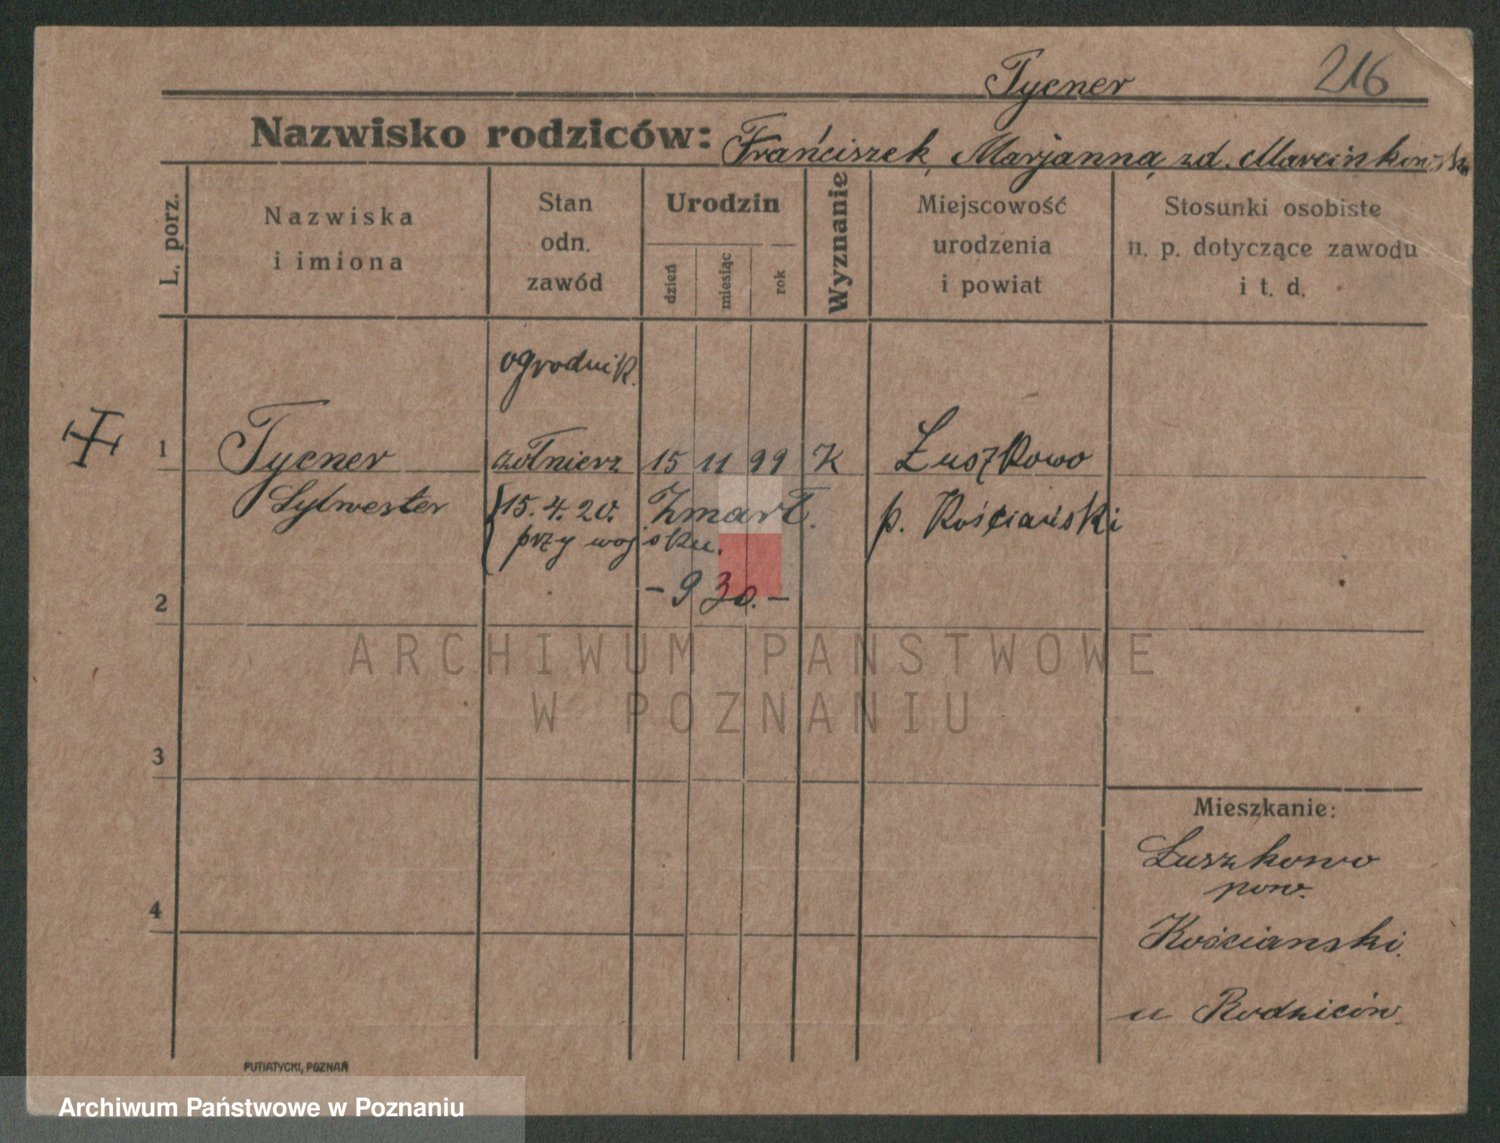 Tycner
216
Nazwisko rodziców: Franciszek, Marjanna zd. Marcinkowska
L. porz.
Nazwiska
i imiona
Stan
odn.
zawód
Urodzin
dzień
miesiąc
rok
Wyznanie
Miejscowość
urodzenia
i powiat
Stosunki osobiste
n. p. dotyczące zawodu
i t. d.
ogrodnik.
1 Tycner żołnierz 15 11 99 K Łuszkowo
Sylwester 15.4.20. Zmarł. p. Kościański
przy wojsku.
- 9 30. -
2
ARCHIWUM PAŃSTWOWE
W POZNANIU
3
Mieszkanie:
Łuszkowo
pow.
4
Kościanski.
u Rodziców.
PUTIATYCKI, POZNAŃ
Archiwum Państwowe w Poznaniu